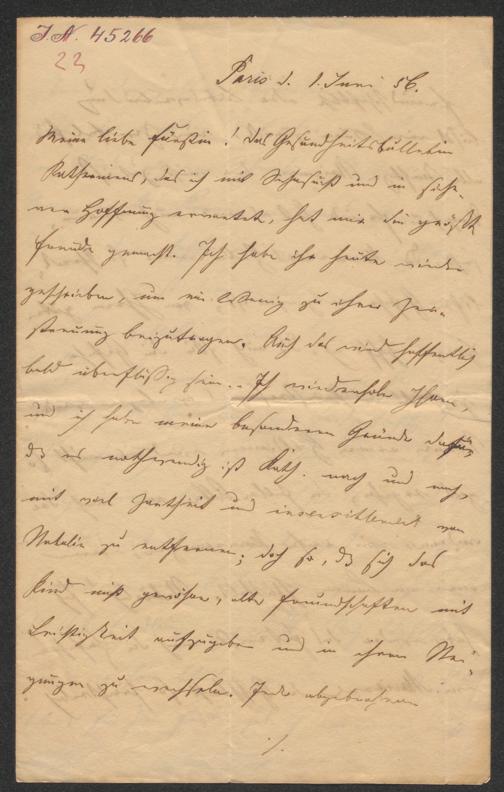 I.N. 45266
23
Paris d. 1. Juni 56.
Meine liebe Fürstin! Das Gesundheitsbülletin
Katherinens, das ich mit Sehnsucht und in siche-
rer Hoffnung erwartet, hat mir die größte
Freude gemacht. Ich habe ihr heute wieder
geschrieben, um ein Wenig zu ihrer Zer-
streuung beizutragen. Auch das wird hoffentlich
bald überflüßig sein. - Ich wiederhole Ihnen,
und ich habe meine besonderen Gründe dafür,
dß es nothwendig ist Kath. nach und nach,
mit viel Zartheit und insensiblement von
Natalie zu entfernen; doch so, dß sich das
Kind nicht gewöhne, alte Freundschaften mit
Leichtigkeit aufzugeben und in ihren Nei-
gungen zu wechseln. Jede abgebrochene
./.